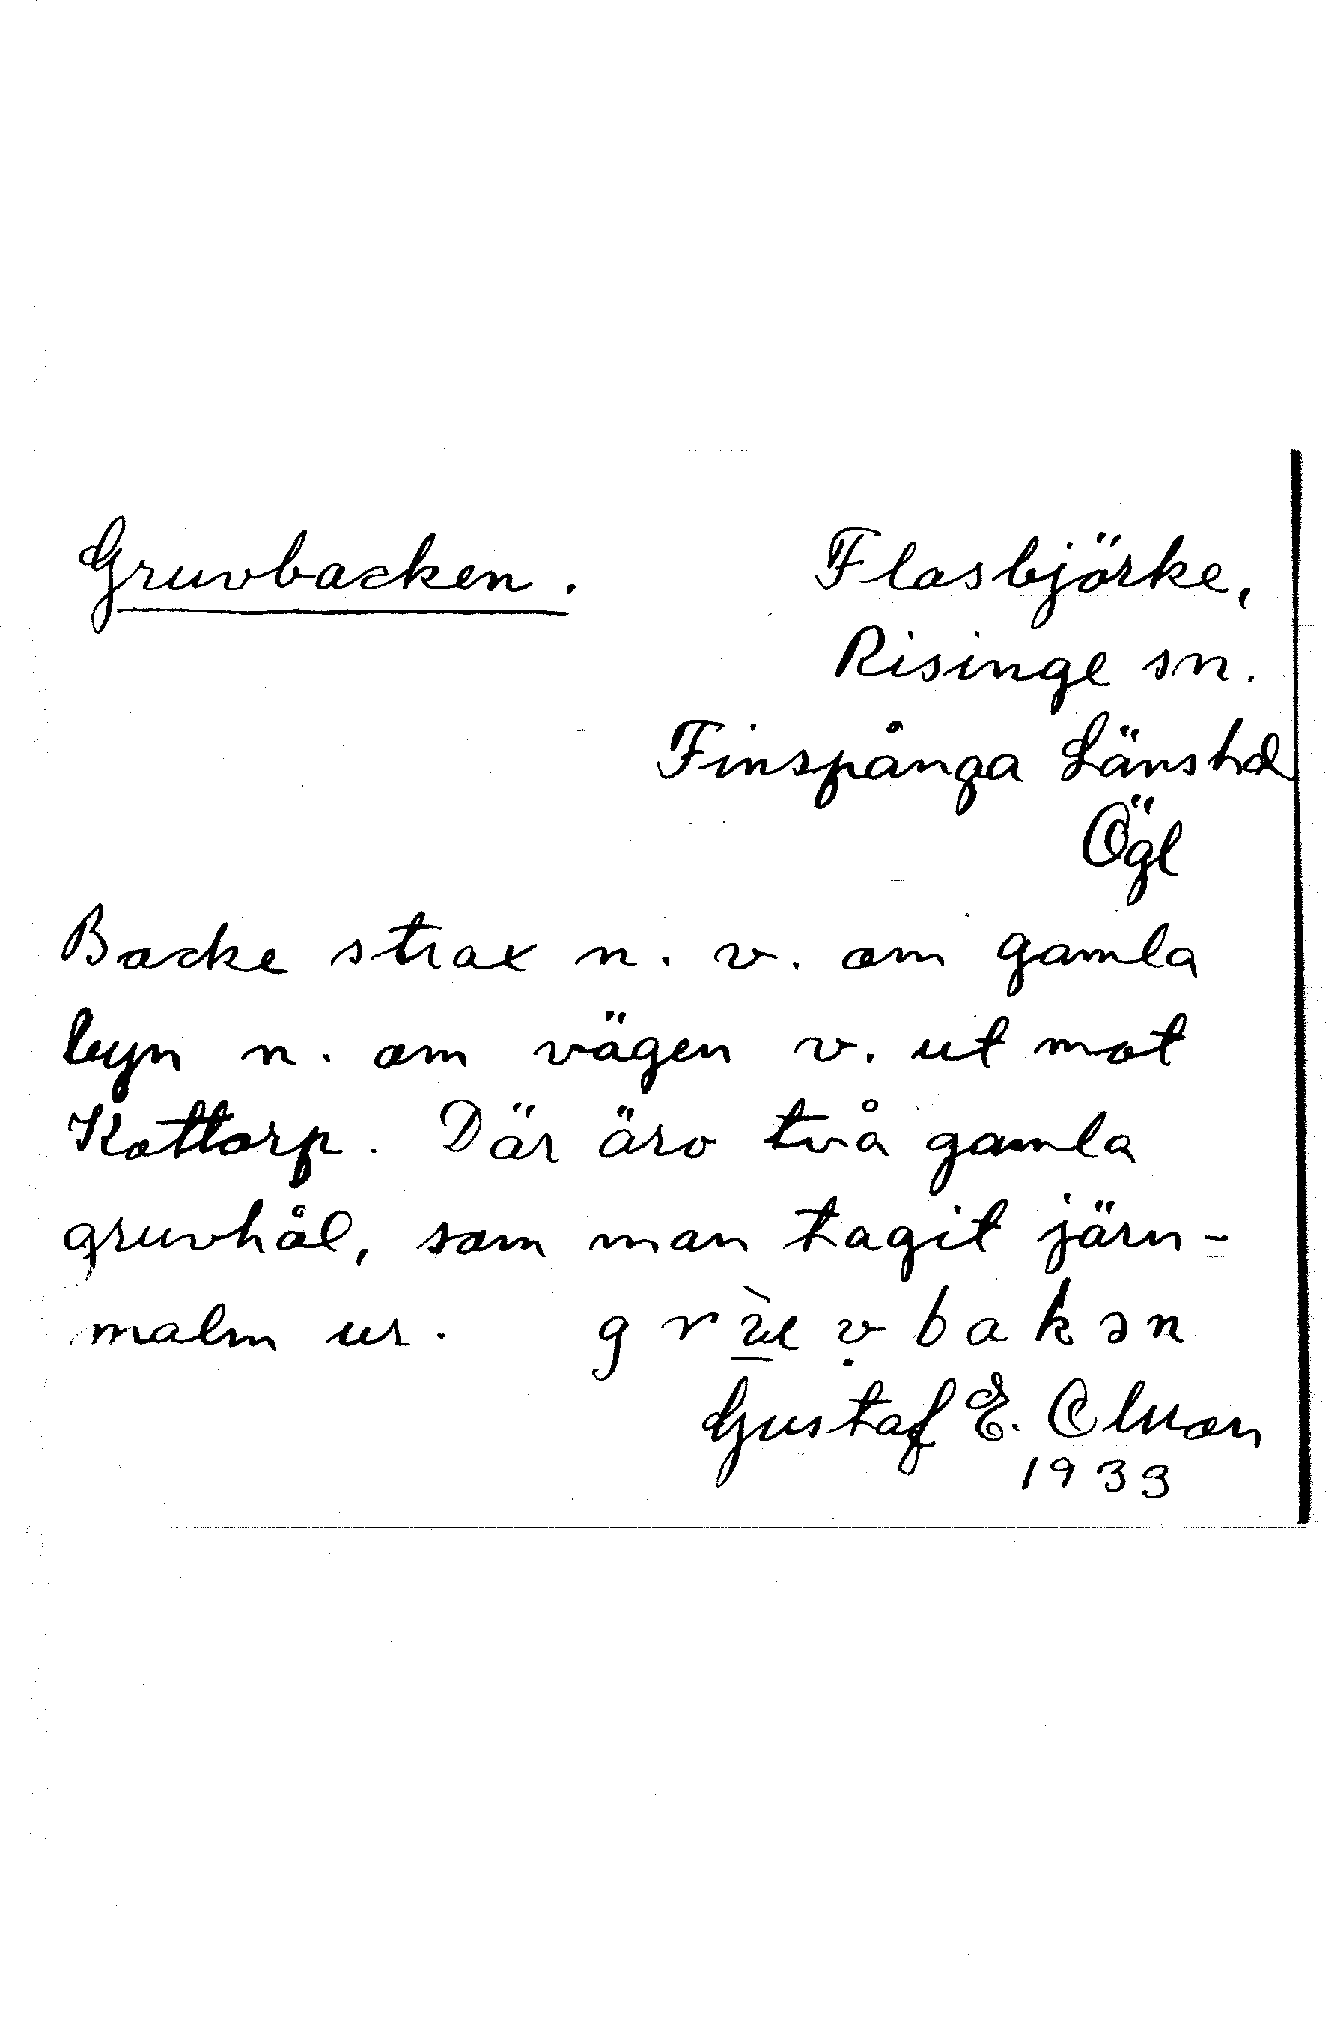 Gruvbacken. Flasbjörke,
Risinge sn.
Finspånga Länshd
Ögl
Backe strax n. v. om gamla
byn n. om vägen v. ut mot
Kottorp. Där äro två gamla
gruvhål, som man tagit järn-
malm ur. grùvbakən
Gustaf E. Olsson
1933